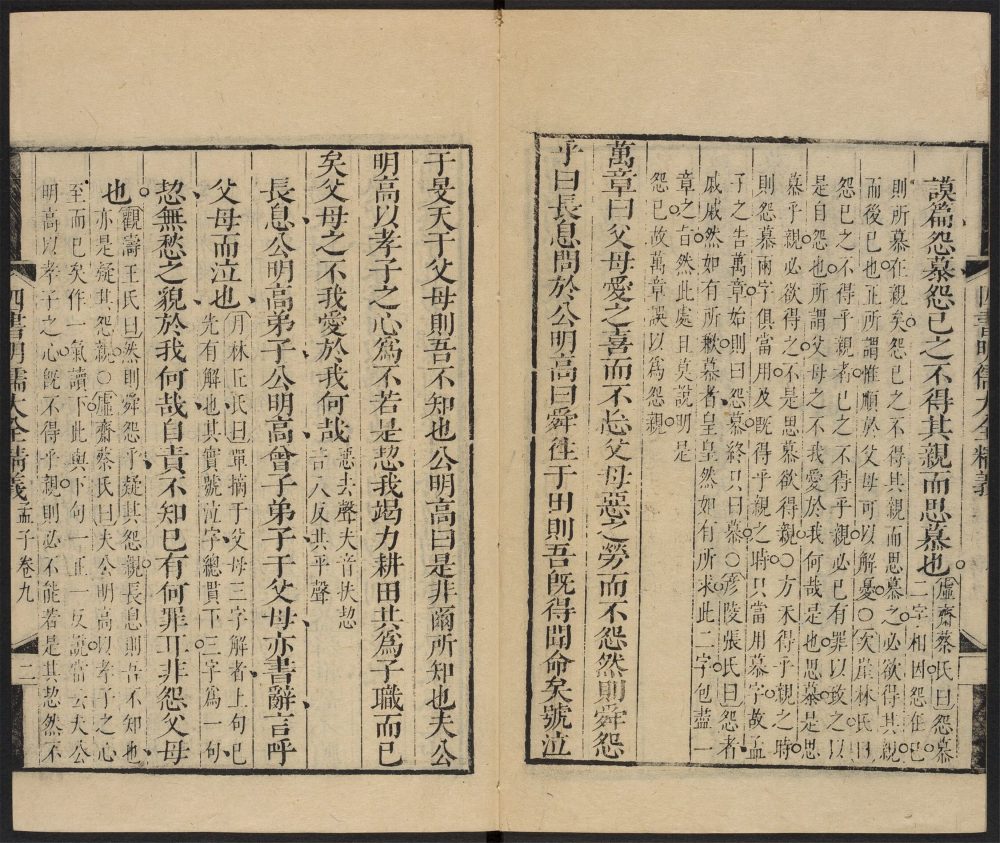 謨篇怨慕怨已之不得其親而思慕也
虛齋蔡氏曰怨慕
二字相因怨在已
則所慕在親矣怨已之不得其親而思慕之必欲得其親
而後已也正所謂惟順於父母可以解憂○次崖林氏曰
怨已之不得乎親者已之不得乎親必已有罪以致之以
是自怨也所謂父母之不我愛於我何哉是也思慕是思
慕乎親必欲得之不是思慕欲得親○方未得乎親之時
則怨慕兩字俱當用及既得乎親之時只當用慕字故孟
子之告萬章始則曰怨慕終只曰慕○彥陵張氏曰怨者
戚戚然如有所歉慕者皇皇然如有所求此二字包盡一
章之旨然此處且莫說明是
怨已故萬章誤以爲怨親
萬章曰父母愛之喜而不忘父母惡之勞而不怨然則舜怨
乎曰長息問於公明高曰舜往于田則吾既得聞命矣號泣
四書明儒大全精義
于旻天于父母則吾不知也公明高曰是非爾所知也夫公
明高以孝子之心爲不若是恝我竭力耕田共爲子職而已
矣父母之不我愛於我何哉
惡去聲夫音扶恝
音八反共平聲
長息公明高弟子公明高曾子弟子于父母亦書辭言呼
父母而泣也
月林丘氏曰單摘于父母三字解者上句已
先有解也其實號泣字總貫下三字爲一句
恝無愁之貌於我何哉自責不知已有何罪耳非怨父母
也
觀濤王氏曰然則舜怨乎疑其怨親長息則吾不知也
亦是疑其怨親○虛齋蔡氏曰夫公明高以孝子之心
至而已矣作一氣讀下此與下句一正一反說當云夫公
明高以孝子之心既不得乎親則必不能若是其恝然不
四書明儒大全精義
孟子卷九
二